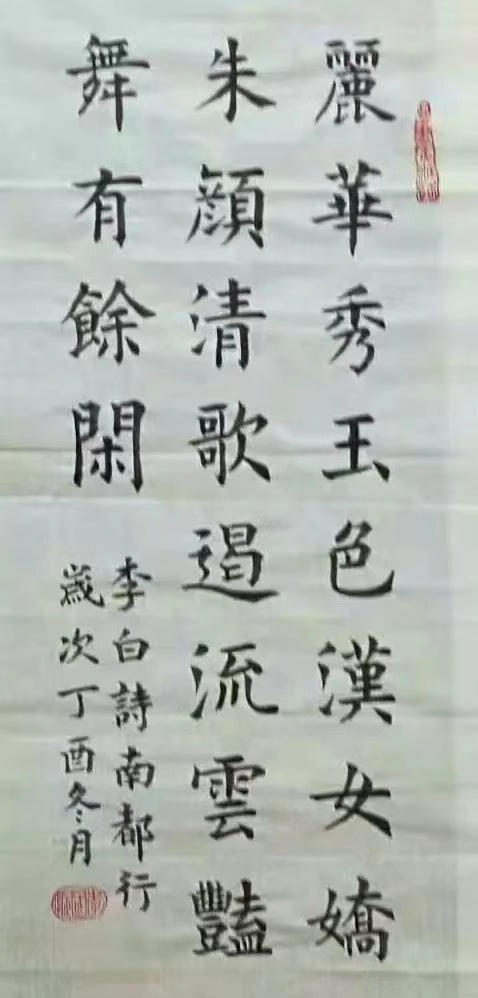 麗華秀玉色漢女嬌
朱顔清歌遏流雲豔
舞有餘閑
李白詩南都行
歲次丁酉冬月